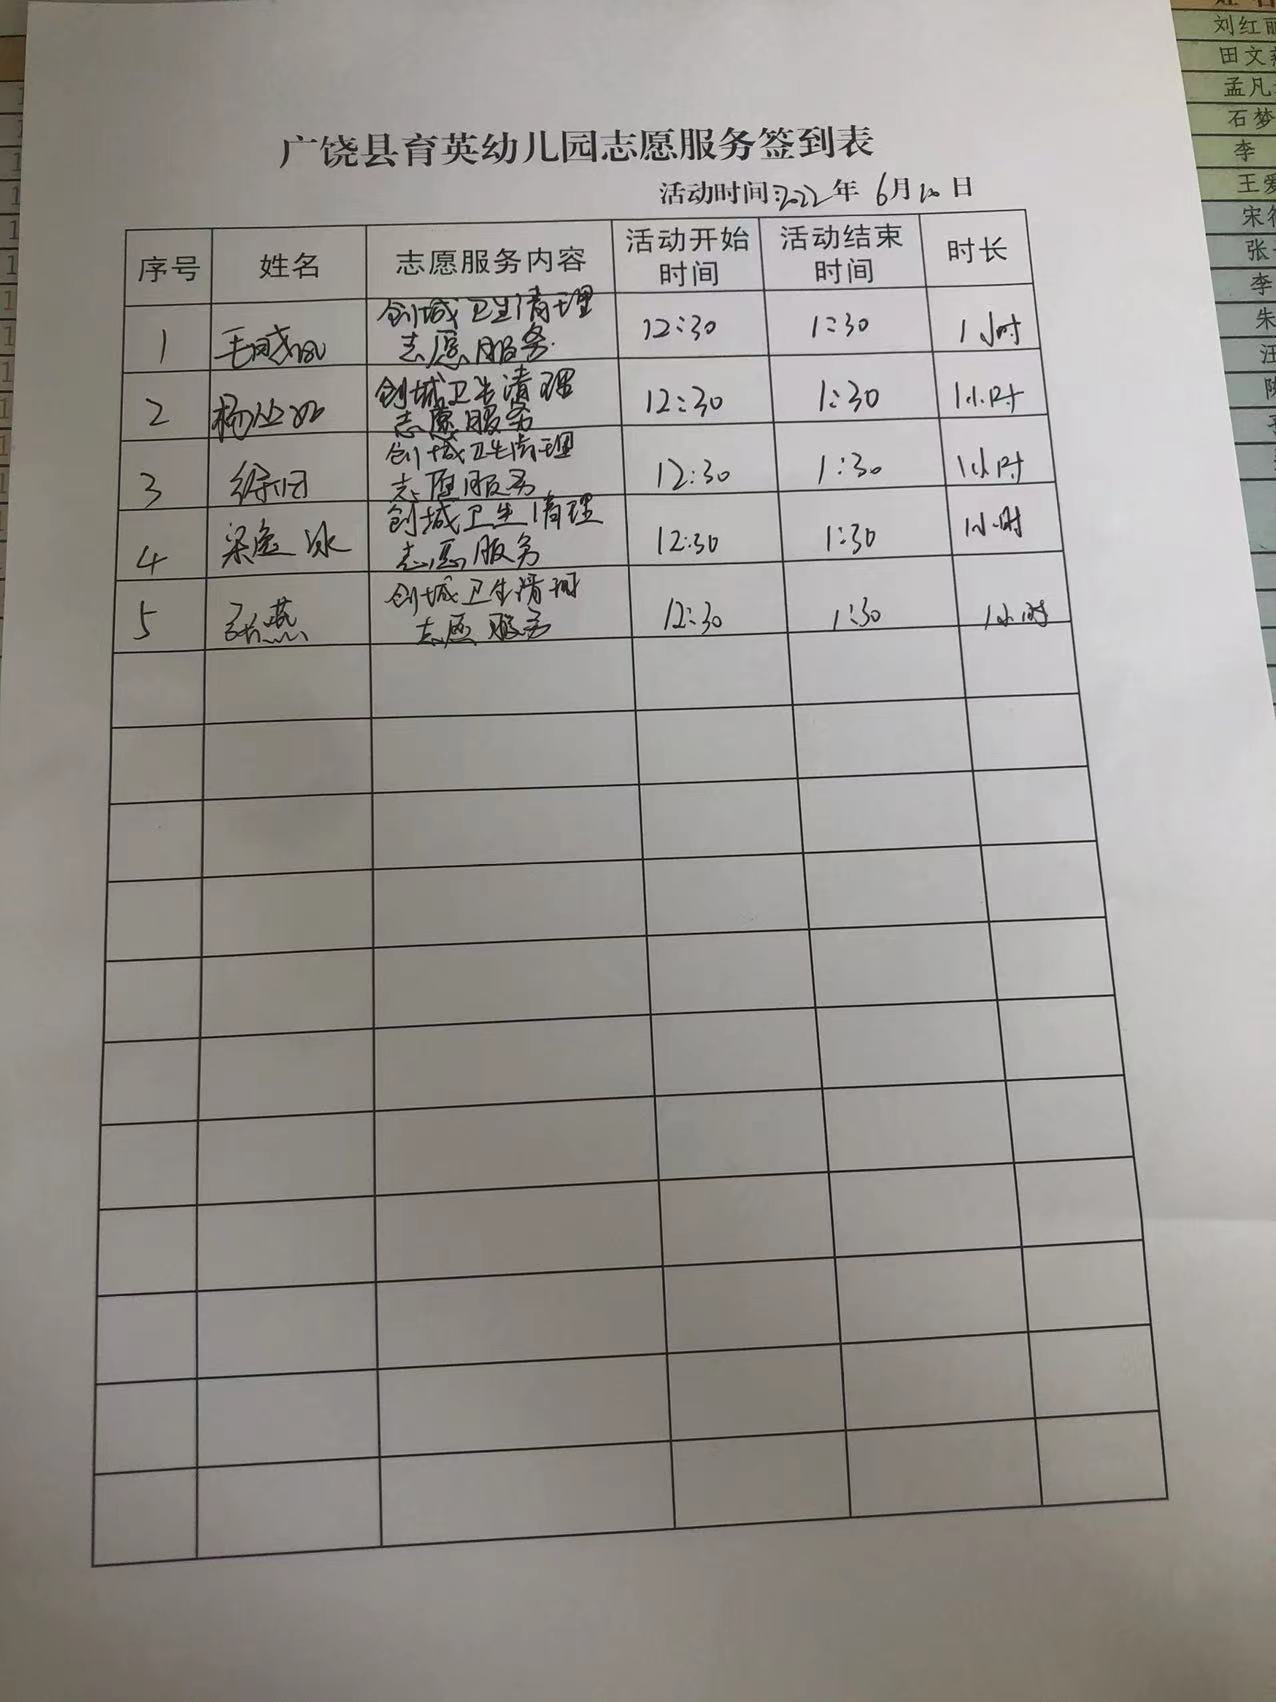 广饶县育英幼儿园志愿服务签到表
活动时间:2022年 6月20日
序号 姓名 志愿服务内容 活动开始时间 活动结束时间 时长
1 创城卫生清理志愿服务. 12:30 1:30 1小时
2 创城卫生清理志愿服务 12:30 1:30 1小时
3 创城卫生清理志愿服务 12:30 1:30 1小时
4 梁逸冰 创城卫生清理志愿服务 12:30 1:30 1小时
5 张燕 创城卫生清理志愿服务 12:30 1:30 1小时
刘红丽
田文
孟凡
石梦
李
王爱
宋
张
李
朱
汪